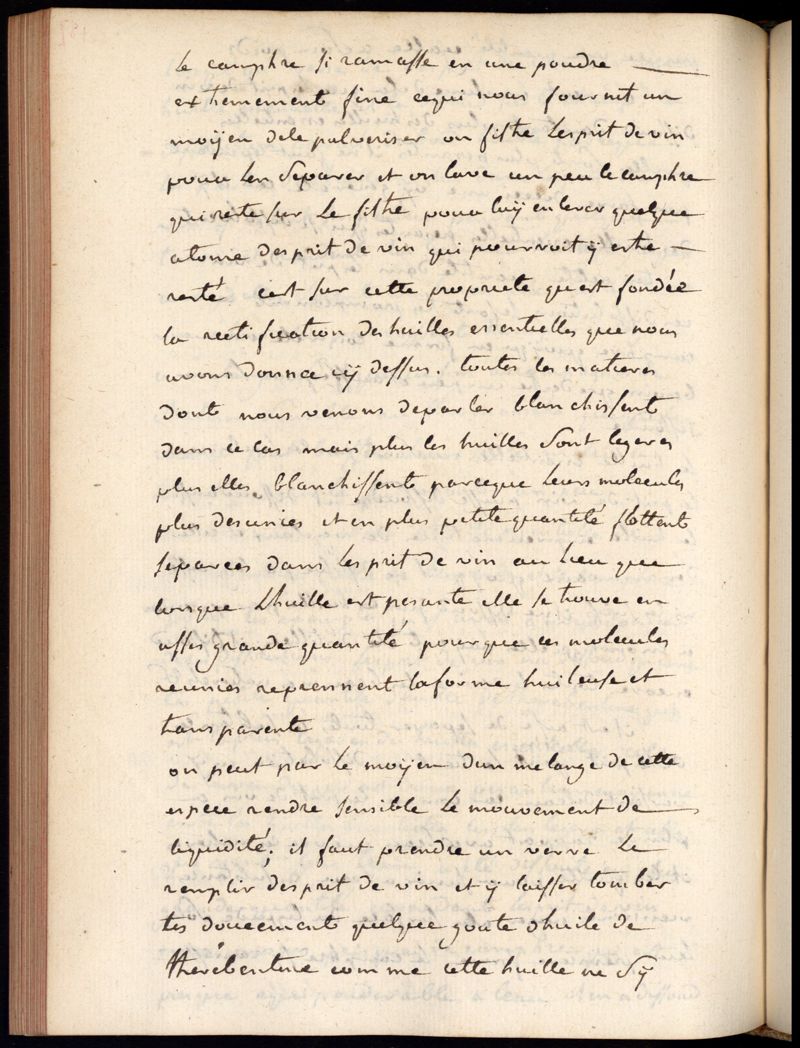 le camphre si ramasse en une poudre
extremement fine cequi nous fournit un
moÿen dele pulveriser on filtre Lesprit de vin
pour Len Separer et on lave un peu le camphre
qui reste sur Le filtre pour luÿ enlever quelque
atome desprit de vin qui pourroit ÿ estre
resté cest sur cette propriete quest fondée
la rectification des huilles essentielles que nous
avons donnee cÿ dessus. toutes les matieres
dont nous venons deparler blanchissent
dans ce cas mais plus les huilles Sont legeres
plus elles blanchissent parceque Leurs molecules
plus desunies et en plus petite quantité flottent
separees dans Lesprit de vin au Lieu que
lorsque Lhuille est pesante elle se trouve en
asses grande quantité pour que ces molecules
reunies reprennent laforme huileuse et
transparente
on peut par Le moÿen dun melange de cette
espece rendre sensible Le mouvement de
liquidité; il faut prendre un verre Le
remplir desprit de vin et ÿ laisser tomber
tes doucement quelque goute dhuile de
therebentine comme cette huille ne Sÿ